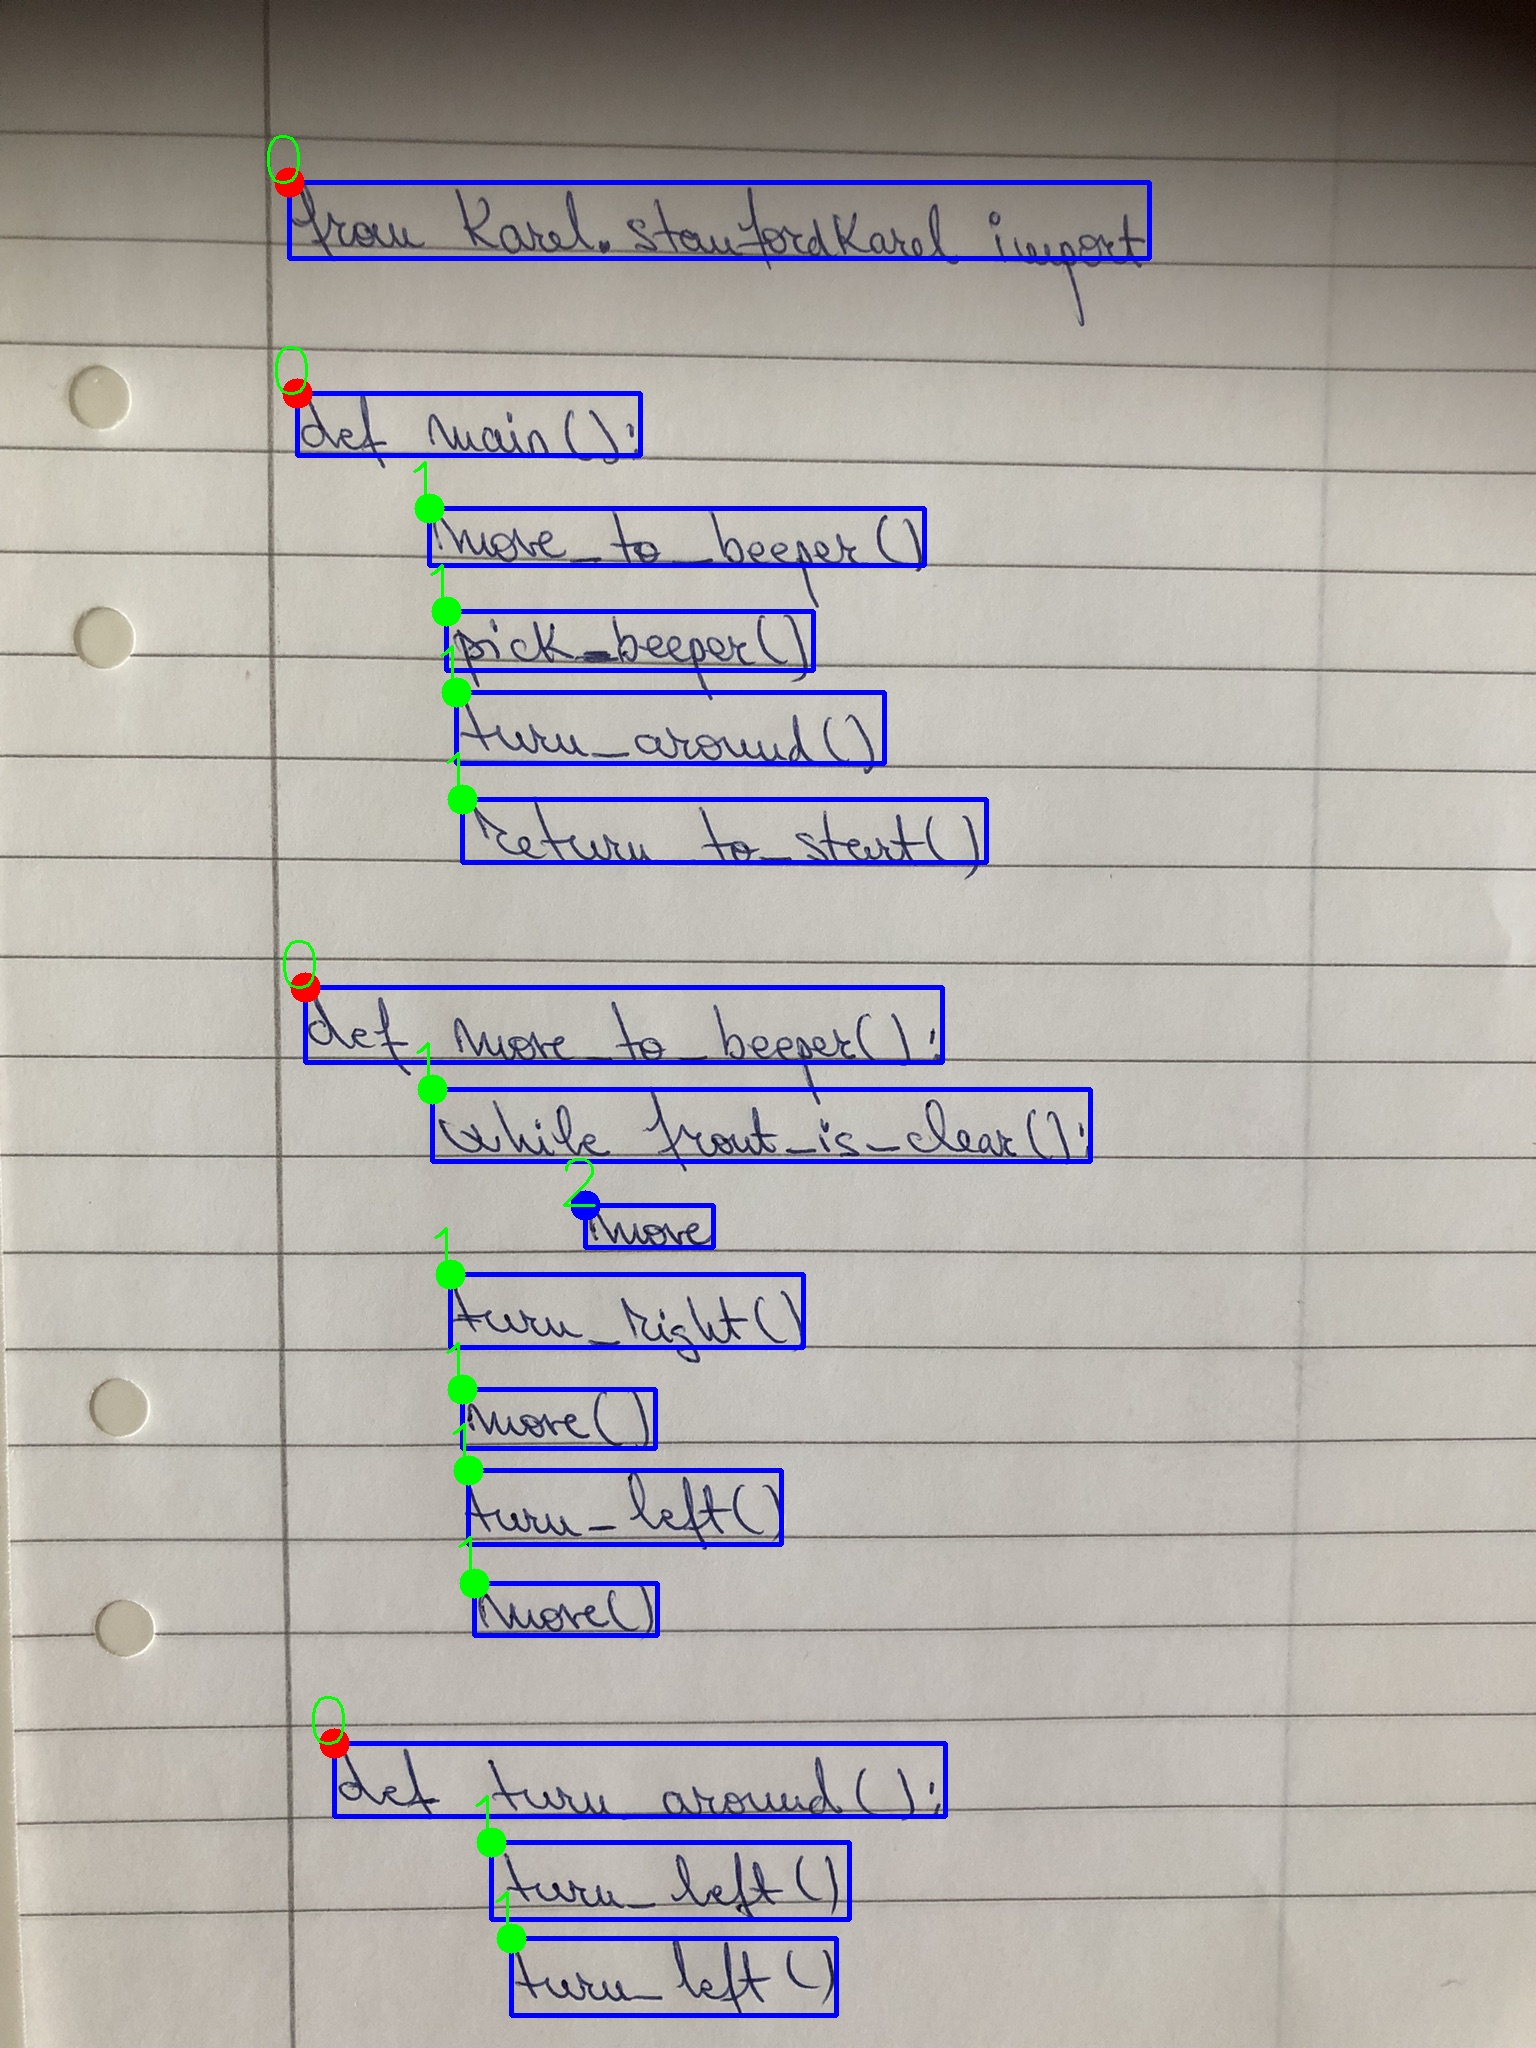 from Karel.stanfordKarel import
def main():
move_to_beeper()
pick_beeper()
turn_around()
return to_start()
def move_to_beeper():
while front_is_clear():
move
turn_right()
move()
turn_left()
move()
def turn around():
turn_left()
turn_left()
0
0
1
1
1
1
0
1
2
1
1
1
1
0
1
1